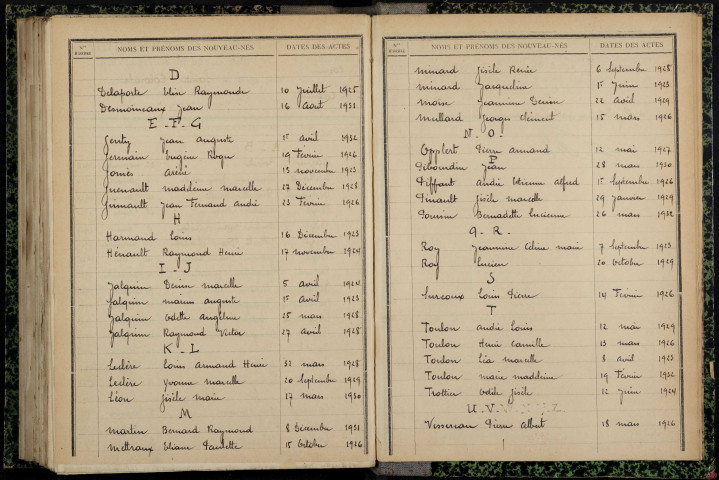 Nos D'ORDRE NOMS ET PRÉNOMS DES NOUVEAU-NÉS DATES DES ACTES
D
Delaporte Raymonde 10 Juillet 1925
Desmoineaux Jean 16 Août 1931
E-F-G
Jean auguste 1er avril 1932
Germain Eugène Roger 19 Février 1926
13 novembre 1923
madeleine marcelle 27 Décembre 1928
Jean Fernand andré 23 Février 1926
H
Harmand Louis 16 Décembre 1923
Hénault Raymond Henri 17 novembre 1924
I-J
Jalquin Denise marcelle 5 avril 1924
Jalquin auguste 1er avril 1923
Jalquin Odette angèline 25 mars 1928
Jalquin Raymond Victor 27 avril 1928
K-L
Leclère Louis Armand Henri 31 mars 1928
Leclère Yvonne marcelle 20 Septembre 1929
Léon Gisèle marie 17 mars 1930
M
martin Bernard Raymond 8 Décembre 1931
mettraux éliane Paulette 15 Octobre 1926
Nos D'ORDRE NOMS ET PRÉNOMS DES NOUVEAU-NÉS DATES DES ACTES
minard Gisèle Renée 6 Septembre 1928
minard Jacqueline 1er Juin 1923
Jeannine Denise 22 avril 1929
Mullard Georges Clément 15 mars 1926
N-O-
Opplert Pierre armand 12 mai 1927
P
Jean 28 mars 1930
Piffaut andré étienne alfred 1er Septembre 1926
Pinault Gisèle marcelle 29 Janvier 1929
Bernadette Lucienne 26 mars 1932
Q-R-
Roy Jeannine Céline marie 7 Septembre 1923
Roy Lucien 20 Octobre 1929
S
Surcoux Louis Pierre 14 Février 1926
T
Toulon andré Louis 12 mai 1929
Toulon Henri Camille 13 mars 1926
Toulon Léa marcelle 8 avril 1923
Toulon marie madeleine 19 Février 1932
Trottier Odile Gisèle 12 Juin 1924
U-V-
Pierre albert 18 mars 1926